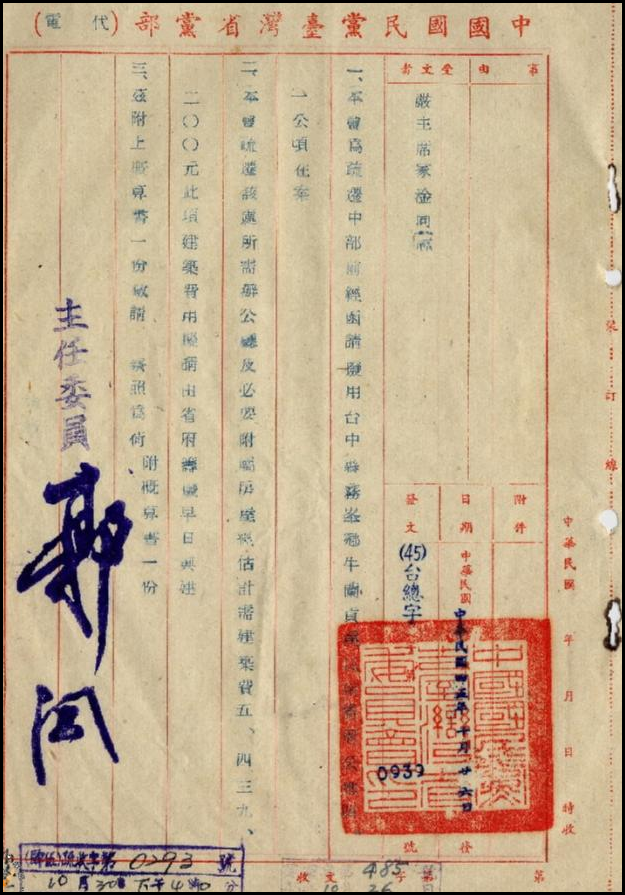 中國國民黨臺灣省黨部(代電)
事由
受文者
嚴主席家淦同
一、本會為疏遷中部前經函請撥用台中縣霧峯鄉牛欄貢
一公頃在案
二、本會疏遷該處所需辦公廳及必要附屬房屋經估計需建築費五、四三九、
二〇〇元此項建築費用擬請由省府籌撥早日興建
三、茲附上概算書一份敬請 為荷
附概算書一份
主任委員
郭
附件
日期
中華民國
中華民國四五年十月廿六日
發文
(45)台總字
0939
號
裝訂線
中華民國 年 月 日 時收
字第0293號
10月30日下午4時0分
收文 字第
485
10 26